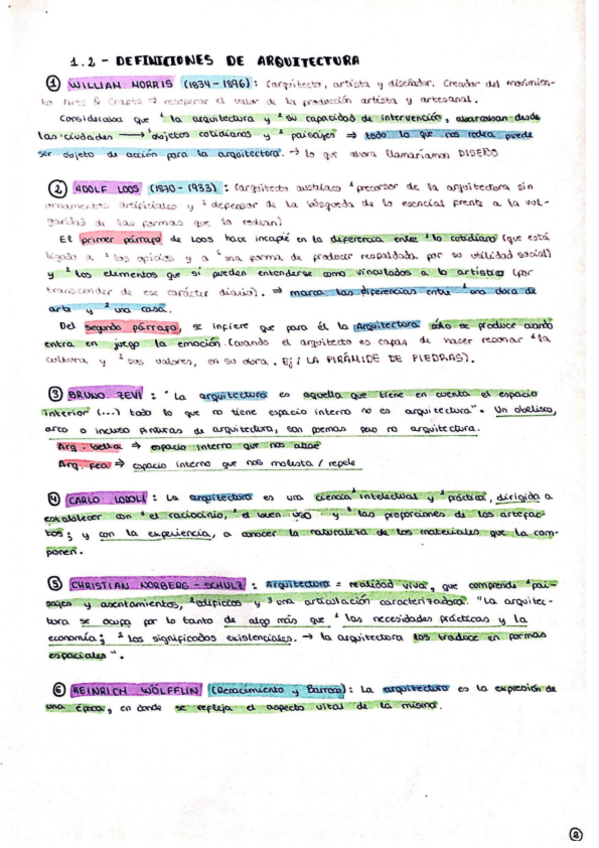 1.2 - DEFINICIONES DE ARQUITECTURA
① WILLIAN MORRIS (1834-1896): (arquitecto, artista y diseñador. Creador del movimien-
to Arts & Crafts ⇒ recuperar el valor de la producción artista y artesanal.
Consideraba que ¹ la arquitectura y ² su capacidad de intervención, abarcaban desde
las ciudades → ¹ objetos cotidianos y ² paisajes ⇒ todo lo que nos rodea puede
ser objeto de acción para la arquitectura. → lo que ahora llamaríamos DISEÑO
② ADOLF LOOS (1870-1933): (arquitecto austriaco ¹ precursor de la arquitectura sin
ornamentos artificiales y ² defensor de la búsqueda de lo esencial frente a la vul-
garidad de las formas que lo rodean)
El primer párrafo de Loos hace incapié en la diferencia entre ¹ lo cotidiano (que está
ligado a ¹ los oficios y a ² una forma de producir respaldada por su utilidad social)
y ² los elementos que sí pueden entenderse como vinculados a lo artístico (por
transcender de ese carácter diario). ⇒ marca las diferencias entre ¹ una obra de
arte y ² una casa.
Del segundo párrafo, se infiere que para él la Arquitectura sólo se produce cuando
entra en juego la emoción (cuando el arquitecto es capaz de hacer resonar ¹ la
cultura y ² sus valores, en su obra. Ej/ LA PIRÁMIDE DE PIEDRAS).
③ BRUNO ZEVI : "La arquitectura es aquella que tiene en cuenta el espacio
interior (...) todo lo que no tiene espacio interno no es arquitectura". Un obelisco,
arco o incluso pinturas de arquitectura, son poemas pero no arquitectura.
Arq. bella ⇒ espacio interno que nos atrae
Arq. fea ⇒ espacio interno que nos molesta / repele
④ CARLO LODOLI : La arquitectura es una ciencia ¹ intelectual y ² práctica, dirigida a
establecer con ¹ el raciocinio, ² el buen uso y ³ las proporciones de los artefac-
tos; y con la experiencia, a conocer la naturaleza de los materiales que la com-
ponen.
⑤ CHRISTIAN NORBERG - SCHULZ : Arquitectura = realidad viva, que comprende ¹ pai-
sajes y asentamientos, ² edificios y ³ una articulación caracterizadora. "La arquitec-
tura se ocupa por lo tanto de algo más que ¹ las necesidades prácticas y la
economía; ² los significados existenciales. → la arquitectura los traduce en formas
espaciales".
⑥ HEINRICH WÖLFFLIN (Renacimiento y Barroco): La arquitectura es la expresión de
una época, en donde se refleja el aspecto vital de la misma.
②